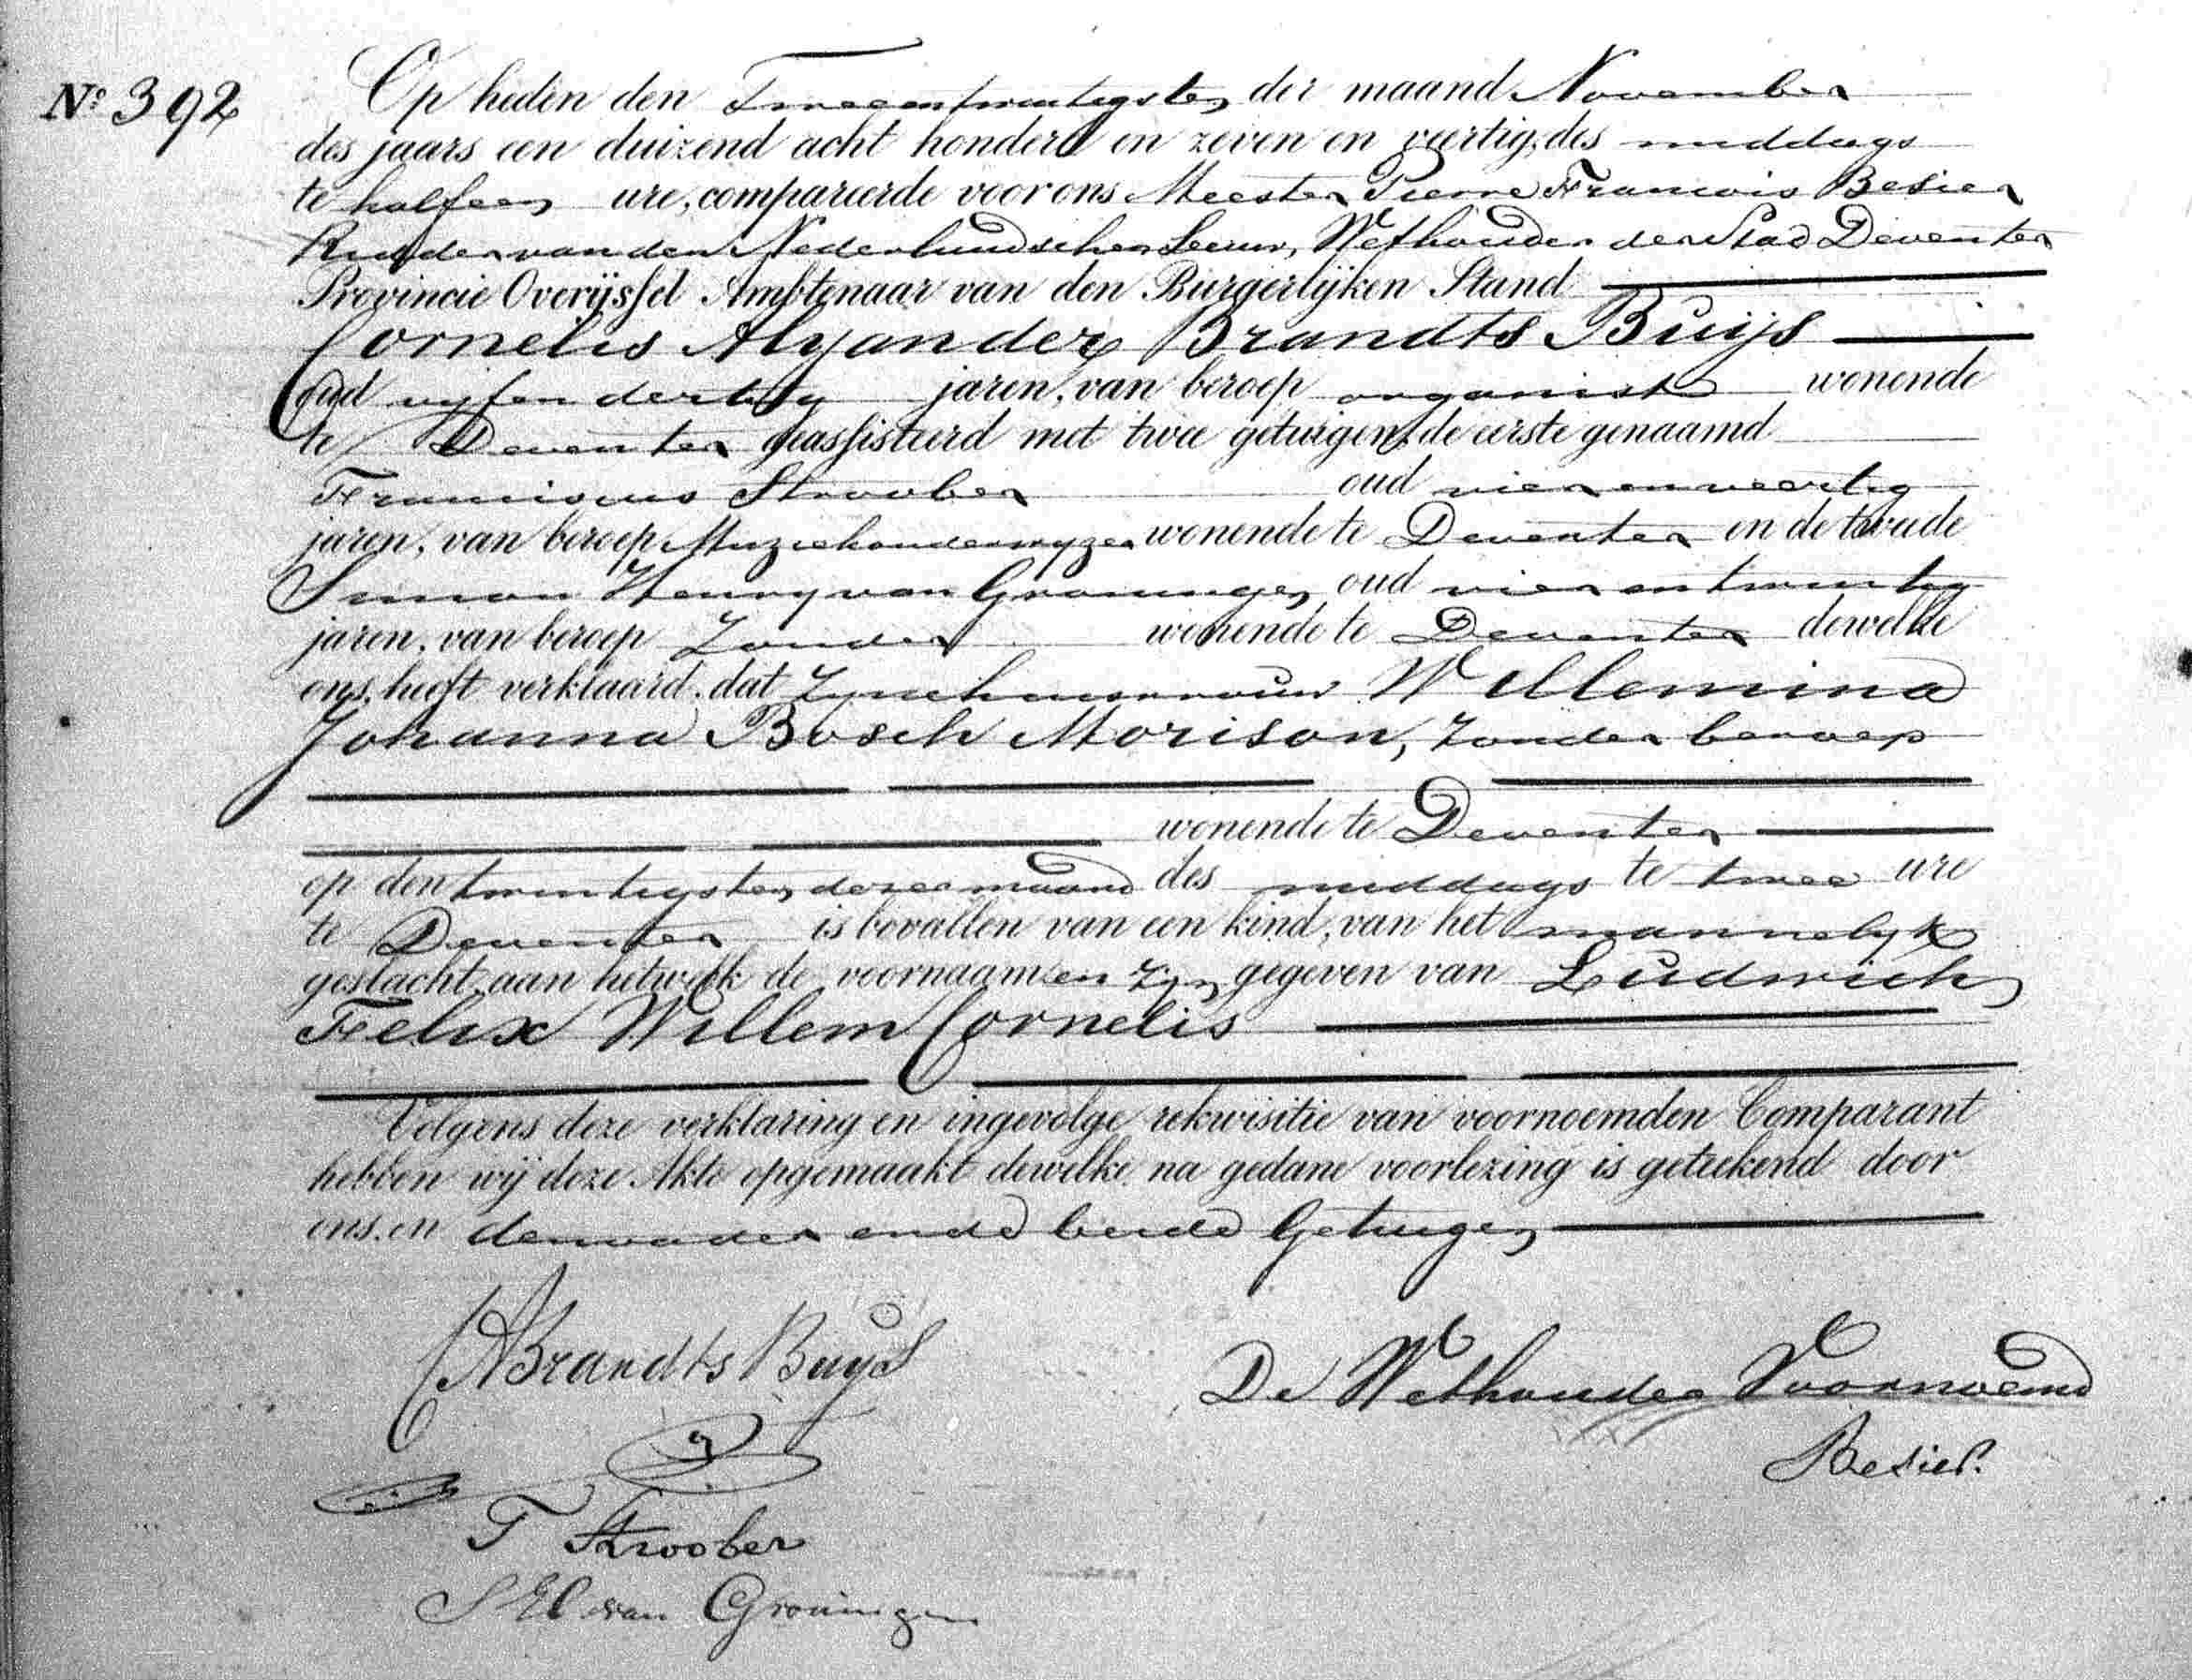 Nº 392
Op heden den Tweeentwintigsten der maand November
des jaars een duizend acht honderd en zeven en veertig, des middags
te halfeen ure, compareerde voor ons Meester Pierre Francois Besier
Ridder van den Nederlandschen Leeuw, Wethouder der Stad Deventer
Provincie Overijssel Ambtenaar van den Burgerlijken Stand
Cornelis Alyander Brandts Buijs
oud vyfendertig jaren, van beroep organist wonende
te Deventer geassisteerd met twee getuigen, de eerste genaamd
Franciscus Stroober oud vierenveertig
jaren, van beroep Muziekonderwyzer wonende te Deventer en de tweede
Simon Henry van Groningen oud vierentwintig
jaren, van beroep Zonder wonende te Deventer dewelke
ons, heeft verklaard, dat Zyne huisvrouw Willemina
Johanna Bosch Morison, Zonder beroep
wonende te Deventer
op den twintigsten dezer maand des middags te twee ure
te Deventer is bevallen van een kind, van het mannelyk
geslacht, aan hetwelk de voornaamen Zyn gegeven van Ludwich
Felix Willem Cornelis
Volgens deze verklaring en ingevolge rekwisitie van voornoemden Comparant
hebben wij deze Akte opgemaakt dewelke na gedane voorlezing is geteekend door
ons. en den vader en de beide Getuigen
CABrandts Buys
De Wethouder Voornoemd
Besier.
F Stroober
S H van Groningen